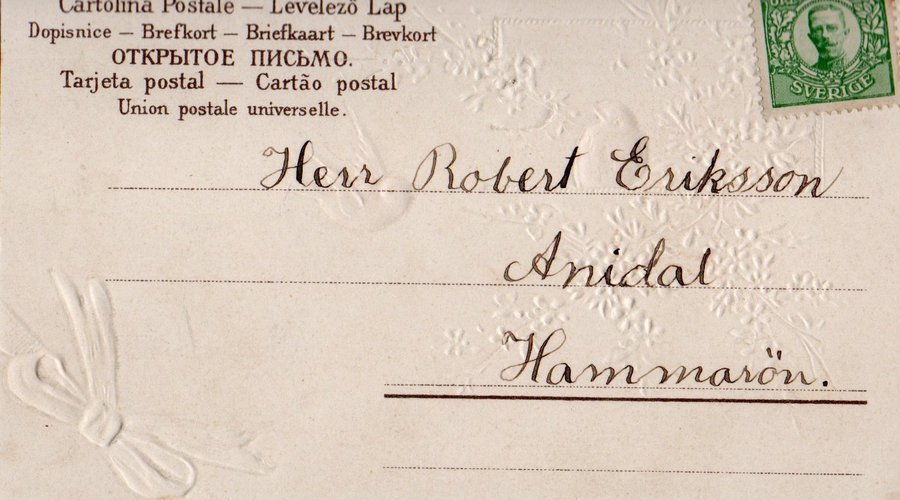 Cartolina Postale — Levelező Lap
Dopisnice — Brefkort — Briefkaart — Brevkort
ОТКРЫТОЕ ПИСЬМО.
Tarjeta postal — Cartão postal
Union postale universelle.
SVERIGE
Herr Robert Eriksson
Anidal
Hammarön.